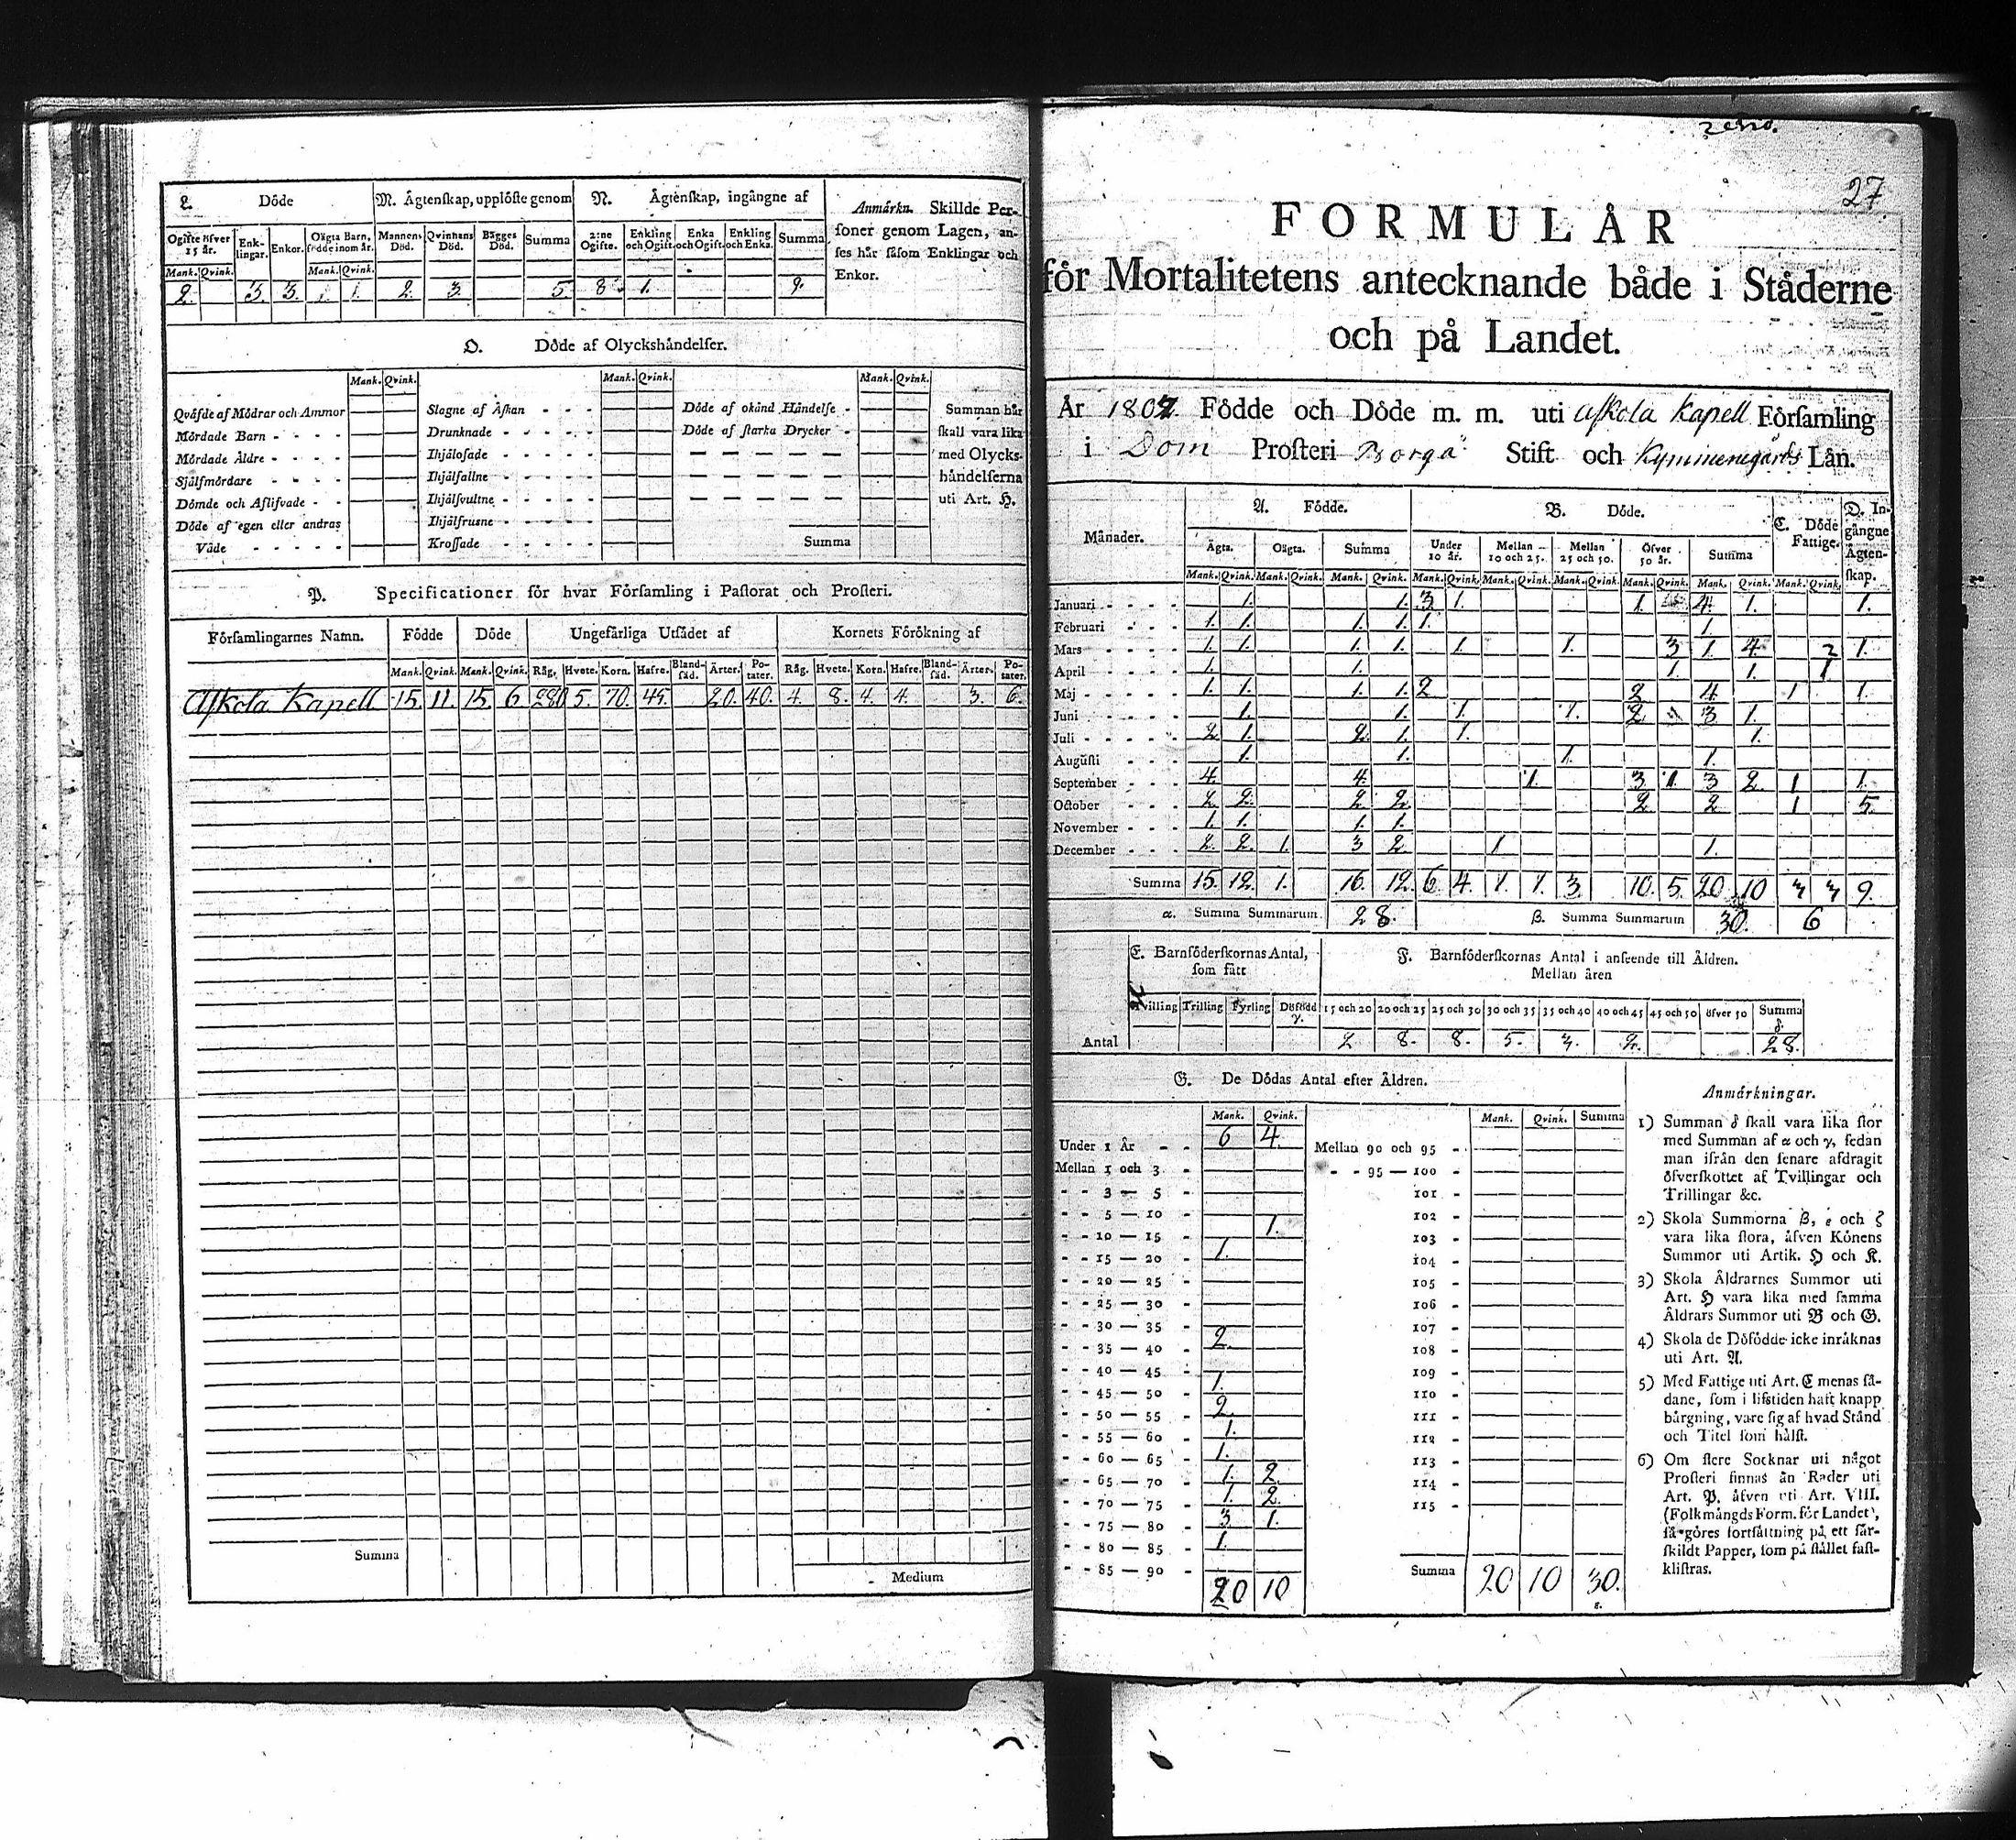 L. Döde
M. Ägtenskap, upplöste genom
N. Ägtenskap, ingångne af
Anmärkn. Skillde Per-
soner genom Lagen, an-
ses här såsom Enklingar och
Enkor.
Ogifte öfver 15 år. Enk-lingar. Enkor. Oägta Barn, födde inom år. Mannens Död. Qvinnans Död. Bägges Död. Summa 2:ne Ogifte. Enkling och Ogift. Enka och Ogift. Enkling och Enka. Summa
Mank. Qvink. Mank. Qvink.
2. 3. 3. 1. 1. 2. 3. 5. 8. 1. 9.
O. Döde af Olyckshändelser.
Mank. Qvink. Mank. Qvink. Mank. Qvink.
Qväfde af Mödrar och Ammor Slagne af Åskan - - - Döde af okänd Händelse - Summan här
Mördade Barn - - - - Drunknade - - - - - Döde af starka Drycker - skall vara lika
Mördade Äldre - - - - Ihjälosade - - - - - med Olycks-
Självmördare - - - - Ihjälfallne - - - - händelserna
Dömde och Aflifvade - - Ihjälsvultne - - - - uti Art. H.
Döde af egen eller andras Ihjälfrusne - - - -
Våde - - - - - Krossade - - - - - Summa
P. Specificationer för hvar Församling i Pastorat och Prosteri.
Församlingarnes Namn. Födde Döde Ungefärliga Utsädet af Kornets Förökning af
Mank. Qvink. Mank. Qvink. Råg. Hvete. Korn. Hafre. Bland-säd. Ärter. Po-tater. Råg. Hvete. Korn. Hafre. Bland-säd. Ärter. Po-tater.
Askola Kapell 15. 11. 15. 6. 280 5. 70. 45. 20. 40. 4. 8. 4. 4. 3. 6.
Summa
Medium
27.
FORMULÄR
för Mortalitetens antecknande både i Städerne
och på Landet.
År 1807. Födde och Döde m. m. uti Askola Kapell Församling
i Dom Prosteri Borgå Stift och Kymmenegårds Län.
Månader. A. Födde. B. Döde. C. Döde Fattige. D. In-gångne Ägten-skap.
Ägta. Oägta. Summa Under 10 år. Mellan 10 och 25. Mellan 25 och 50. Öfver 50 år. Summa
Mank. Qvink. Mank. Qvink. Mank. Qvink. Mank. Qvink. Mank. Qvink. Mank. Qvink. Mank. Qvink. Mank. Qvink. Mank. Qvink.
Januari - - - - 1. 1. 3 1. 1. 4. 1. 1.
Februari - - - 1. 1. 1. 1. 1. 1.
Mars - - - - 1. 1. 1. 1. 1. 1. 3 1. 4. 2 1.
April - - - - 1. 1. 1. 1. 1
Maj - - - - - 1. 1. 1. 1. 2 2 4. 1 1.
Juni - - - - - 1. 1. 1. 1. 2 3 1.
Juli - - - - - 2 1. 2. 1. 1. 1.
Augusti - - - 1. 1. 1. 1.
September - - - 4. 4. 1. 3 1. 3 2. 1 1.
October - - - 2. 2. 2 2. 2 2 1 5.
November - - - 1. 1. 1. 1.
December - - - 2. 2. 1. 3 2 1 1.
Summa 15. 12. 1. 16. 12. 6. 4. 1. 1. 3. 10. 5. 20 10 3 3 9.
α. Summa Summarum 28. β. Summa Summarum 30. 6
E. Barnföderskornas Antal, som fått
F. Barnföderskornas Antal i anseende till Åldren.
Mellan åren
Tvilling Trilling Fyrling Dödfödd γ. 15 och 20 20 och 25 25 och 30 30 och 35 35 och 40 40 och 45 45 och 50 öfver 50 Summa δ.
Antal 2 8. 8. 5. 3. 2. 28.
G. De Dödas Antal efter Åldren.
Mank. Qvink. Mank. Qvink. Summa
Under 1 År - - 6 4. Mellan 90 och 95 -
Mellan 1 och 3 - - - 95 — 100 -
- - 3 — 5 - 101 -
- - 5 — 10 102 -
- - 10 — 15 - 1. 103 -
- - 15 — 20 - 1. 104 -
- - 20 — 25 105 -
- - 25 — 30 - 106 -
- - 30 — 35 - 107 -
- - 35 — 40 - 2. 108 -
- - 40 — 45 109 -
- - 45 — 50 - 1. 110 -
- - 50 — 55 - 2. 111 -
- - 55 — 60 - 1. 112 -
- - 60 — 65 - 1. 113 -
- - 65 — 70 - 1. 2. 114 -
- - 70 — 75 - 1. 2. 115 -
- - 75 — 80 - 3 1.
- - 80 — 85 - 1.
- - 85 — 90 -
20 10 Summa 20 10 30.
ε.
Anmärkningar.
1) Summan δ skall vara lika stor
med Summan af α och γ, sedan
man ifrån den senare afdragit
öfverskottet af Tvillingar och
Trillingar &c.
2) Skola Summorna β, ε och ζ
vara lika stora, äfven Könens
Summor uti Artik. H och K.
3) Skola Åldrarnes Summor uti
Art. H vara lika med samma
Åldrars Summor uti B och G.
4) Skola de Dödfödde icke inräknas
uti Art. A.
5) Med Fattige uti Art. C menas så-
dane, som i lifstiden haft knapp
bärgning, vare sig af hvad Stånd
och Titel som hälst.
6) Om flere Socknar uti något
Prosteri finnas än Rader uti
Art. P. äfven uti Art. VIII.
(Folkmängds Form. för Landet),
så göres fortsättning på ett sär-
skildt Papper, som på stället fast-
klistras.